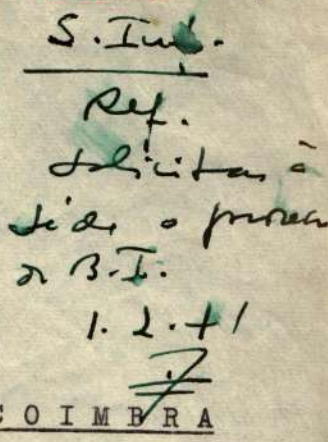 S. Inf.
Ref.
Solicitar à
séde o processo
de B.I.
1. 2. 71
COIMBRA